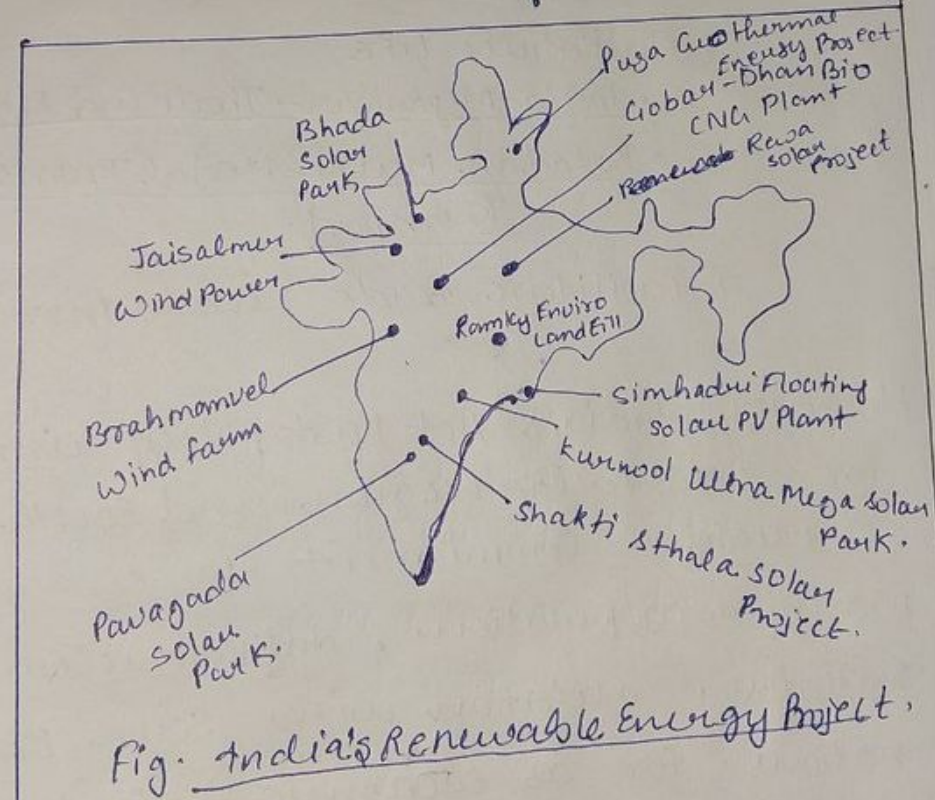 Puga Geothermal
Energy Project
Gobar-Dhan Bio
CNG Plant
Rewa
Solar
Project
Bhada
Solar
Park
Jaisalmer
Wind Power
Ramky Enviro
Landfill
Brahmanvel
Wind farm
Simhadri Floating
Solar PV Plant
Kurnool Ultra Mega Solar
Park.
Shakti Sthala Solar
Project.
Pavagada
Solar
Park.
Fig. India's Renewable Energy Project.